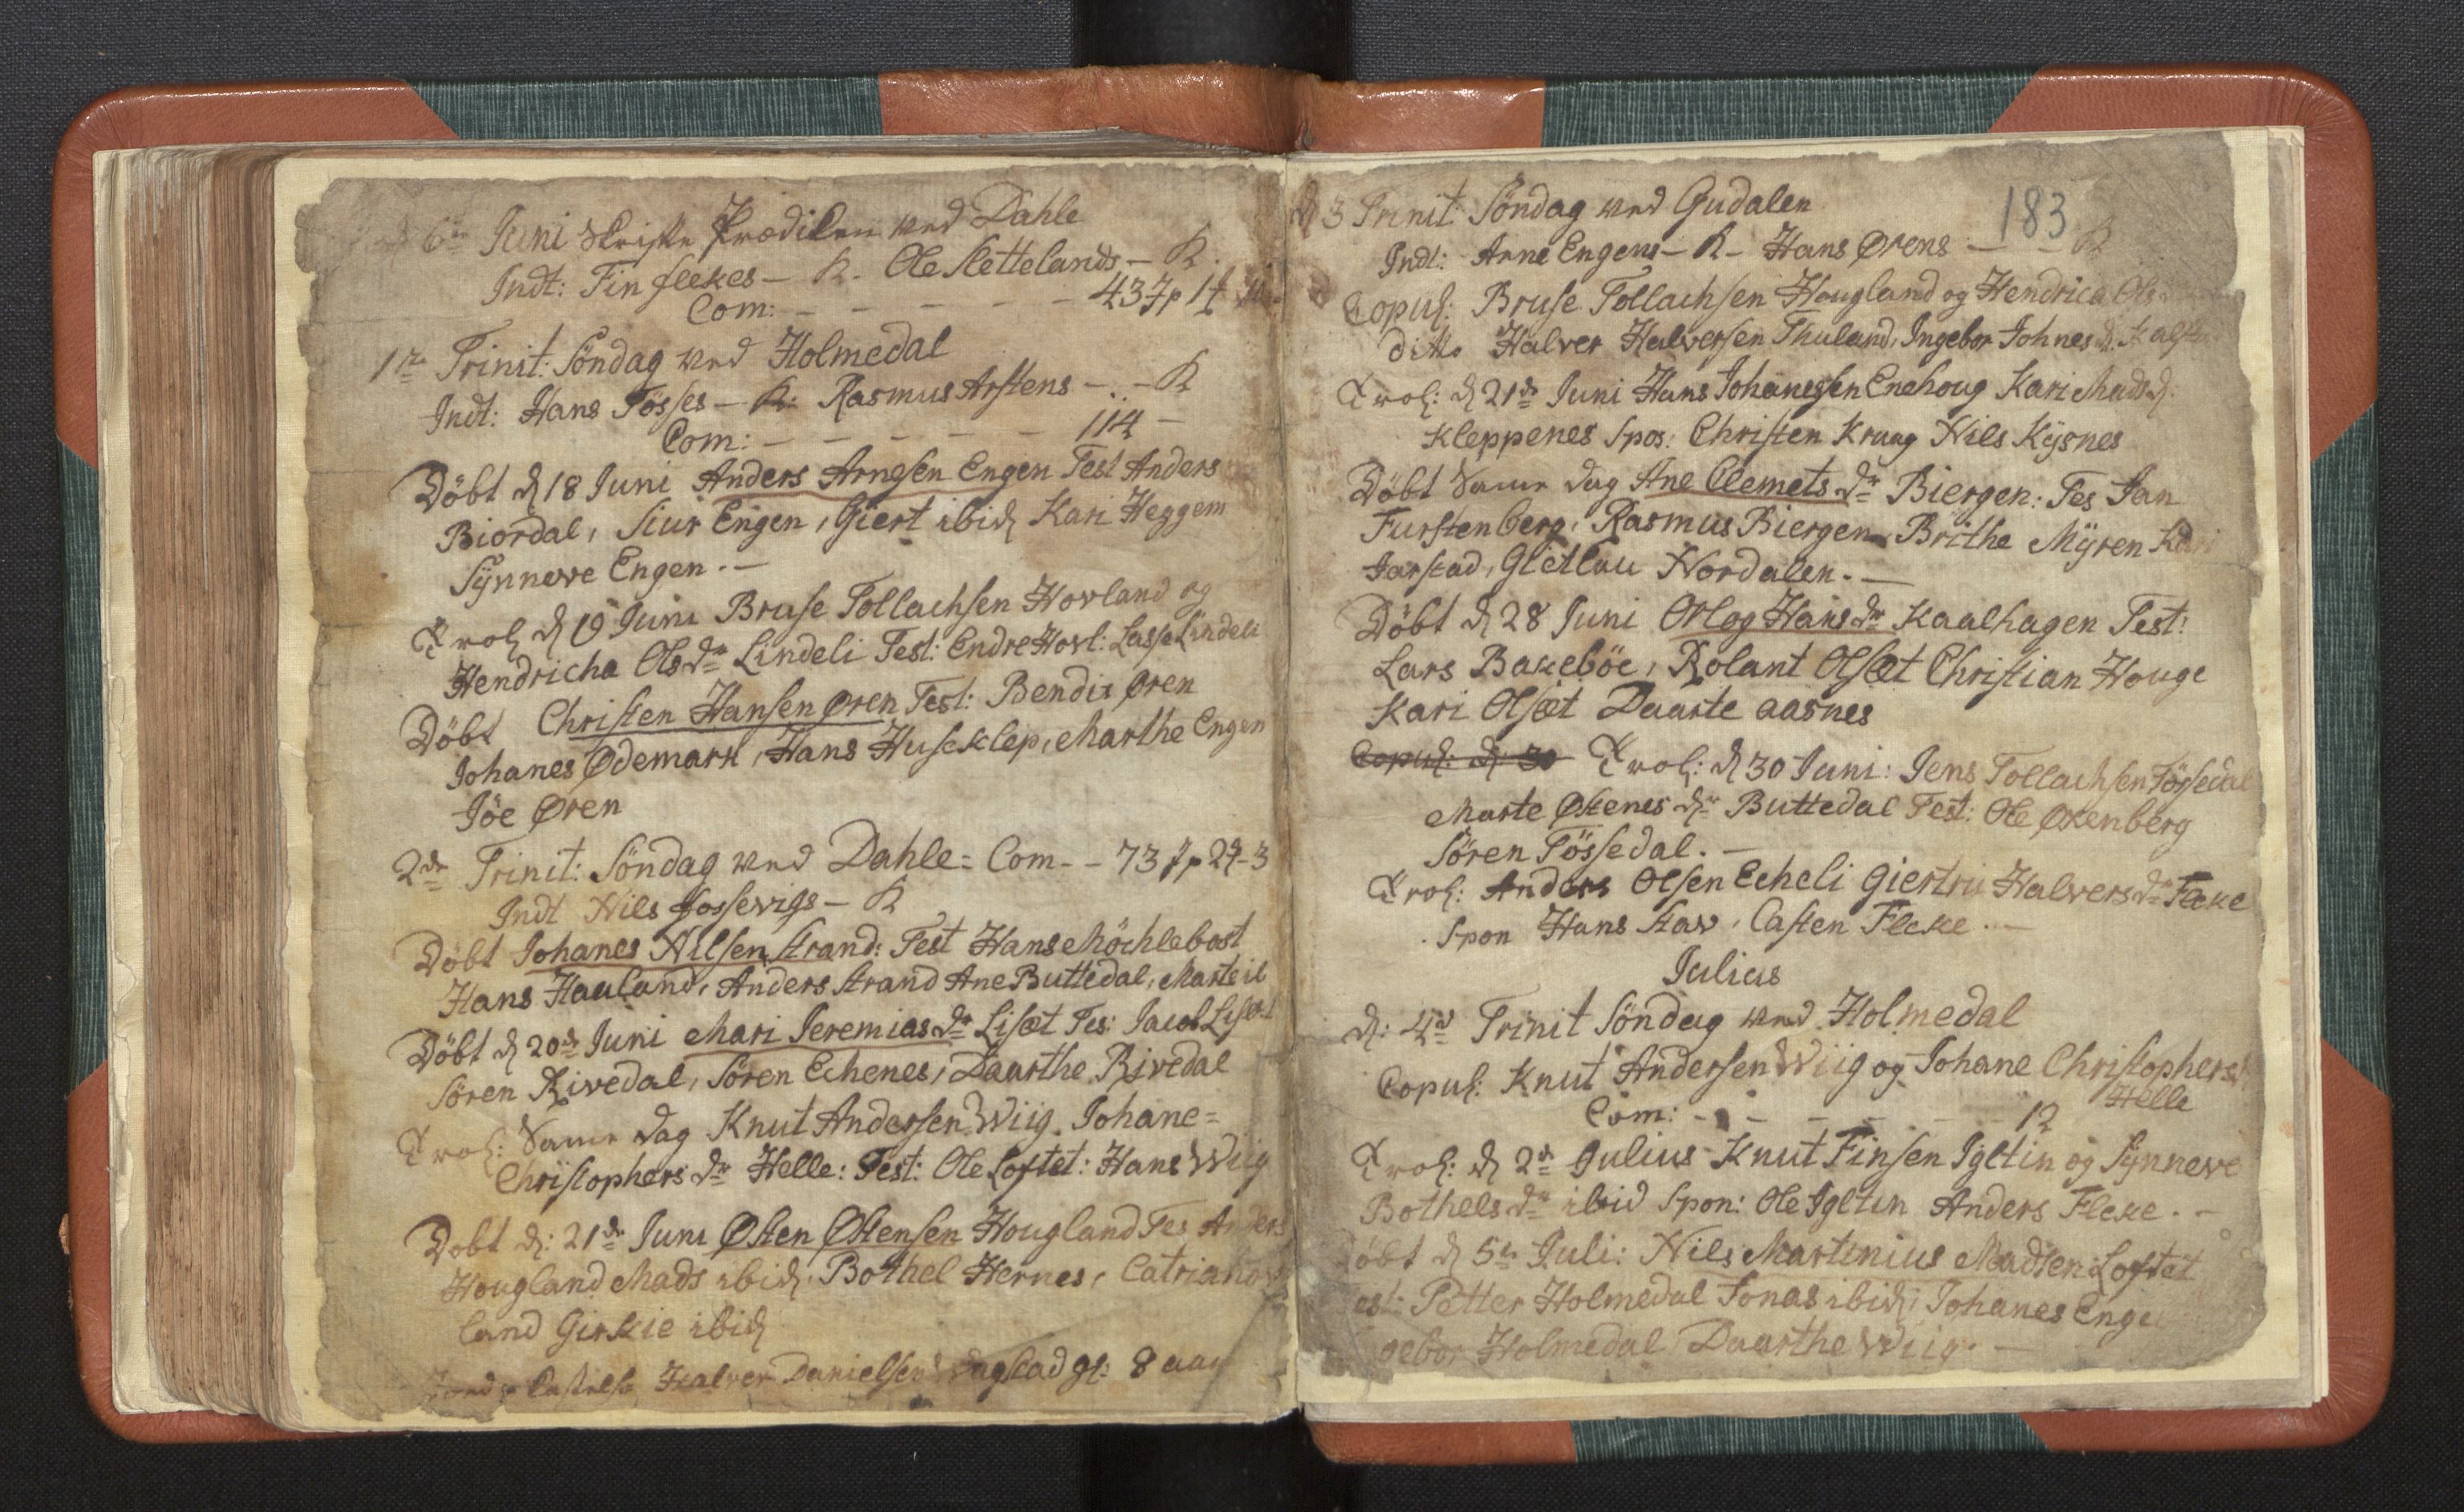 6te Juni Skrifte Prædiken ved Dahle
Indt: Fin flekes - K. Ole Slettelands - K.
Com: - - - - - 43
1te Trinit: Söndag ved Holmedal
Indt: Hans Fösses - K: Rasmus Arstens - . - K
Com: - - - - - 114 -
Döbt d 18 Juni Anders Arnesen Engen Test Anders
Biordal, Siur Engen, Giert ibid Kari Heggem
Sÿnneve Engen. -
Trol: d 19 Juni Bruse Tollachsen Hovland og
Hendricha Olsdr Lindeli Test: Endre Hovl: Lasse Lindeli
Döbt Christen Hansen Øren Test: Bendix Øren
Johanes Ødemark, Hans Huseklep, Marthe Engen
Jöe Øren
2de Trinit: Söndag ved Dahle = Com - - 73
Indt Nils Jossevigs - K
Döbt Johanes Nilsen Strand: Test Hans Möchlebost
Hans Haaland, Anders Strand Ane Buttedal, Marte ib
Döbt d 20de Juni Mari Jeremiasdr Lisæt Tes: Jacob Lisæt
Sören Rivedal, Sören Echenes, Daarthe Rivedal
Trol: Samme dag Knut Andersen Wiig. Johane =
Christophersdr Helle: Test: Ole Loftet: Hans Wiig
Döbt d: 21de Juni Østen Østensen Hougland Tes Anders
Hougland Mads ibid: Bothel Hernes, Catriane
land Girkie ibid
Halver Danielsen Vagstad gl: 8 aar
183
d 3 Trinit: Söndag ved Gudalen
Indt: Arne Engens - K - Hans Ørens - - K
Copul: Bruse Tollachsen Hougland og Hendrica Ols
ditto Halver Halversen Thuland, Ingebor Johnesd:
Trol: d 21de Juni Hans Johanessen Enehoug Kari Madsd:
Kleppenes Spos: Christen Kraag Nils Kÿsnes
Döbt Samme dag Ane Clemetsdr Biergen: Tes Jan
Furstenberg, Rasmus Biergen, Brithe Mÿren Kari
Jarstad, Gletlau Nordalen. -
Döbt d 28 Juni Orlog Hansdr Kaalhagen Test:
Lars Bakeböe, Rolant Olsæt Christian Houge
Kari Olsæt Daarte Aasnes
Copul: d: 30 Trol: d 30 Juni: Jens Tollachsen Fössedal
Marte Øskenesdr Buttedal Test: Ole Øxenberg
Sören Fössedal. -
Trol: Anders Olsen Echeli Giertru Halversdr Flæke
Spon Hans Stav, Casten Fleke. -
Julius
d: 4de Trinit Söndag ved Holmedal
Copul: Knut Andersen Wiig og Johane Christophersd
Helle
Com: - - - - - 12
Trol: d 2de Julius Knut Finsen Igltin og Sÿnneve
Bothelsdr ibid Spon: Ole Igltin Anders Fleke. -
öbt d 5te Juli: Nils Martinius Madsen Loftet
est: Petter Holmedal Jonas ibid, Johanes Enge
gebor Holmedal Daarthe Wiig. -